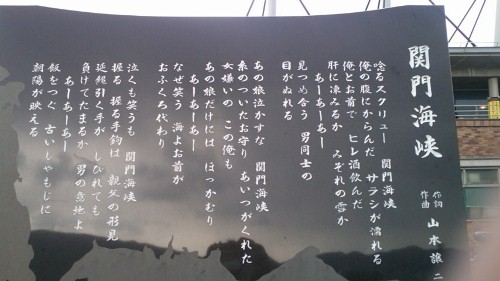 関門海峡
作詞
作曲
山本譲二
唸るスクリュー 関門海峡
俺の腹にからんだ サラシが濡れる
俺とお前で ヒレ酒飲んだ
肝に凍みるか みぞれの雪か
あーあーあー
見つめ合う 男同士の
目がぬれる
あの娘泣かすな 関門海峡
糸のついたお守り あいつがくれた
女嫌いの この俺も
あの娘だけには ほっかむり
あーあーあー
なぜ笑う 海よお前が
おふくろ代わり
泣くも笑うも 関門海峡
握る 握る手鈎は 親父の形見
延縄引く手が しびれても
負けてたまるか 男の意地よ
あーあーあー
飯をつぐ 古いしゃもじに
朝陽が映える